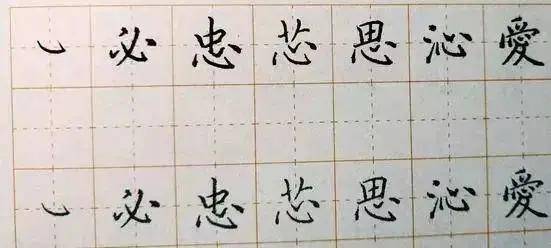 ㇃必忠芯思沁愛
㇃必忠芯思沁愛